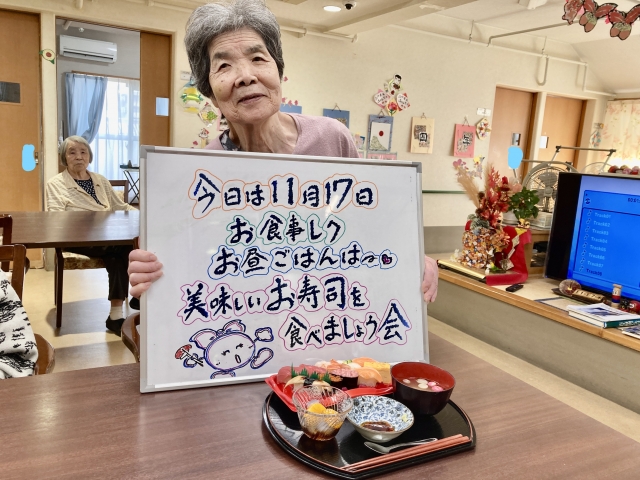 今日は11月17日
お食事レク
お昼ごはんは〜
美味しいお寿司を
食べましょう会